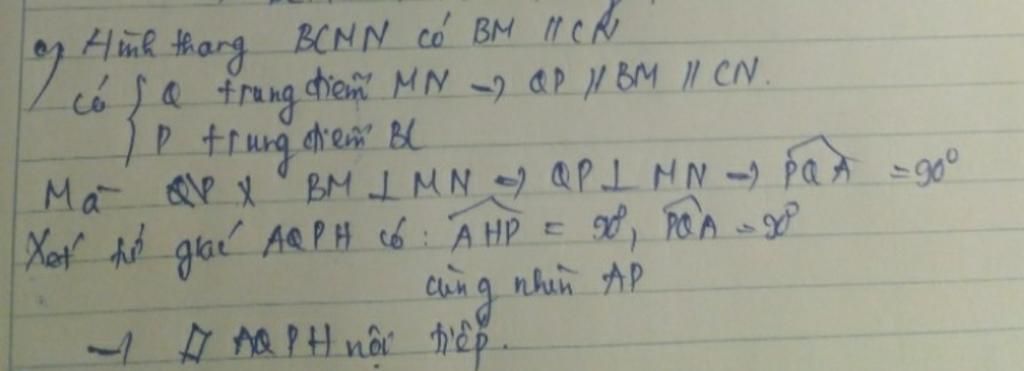 a) Hình thang BCMN có BM // CN
có { Q trung điểm MN → QP // BM // CN.
P trung điểm BC
Mà BM ⊥ MN → QP ⊥ MN → PQA = 90°
Xét tứ giác AQPH có: AHP = 90°, PQA = 90°
cùng nhìn AP
→ ▱ AQPH nội tiếp.